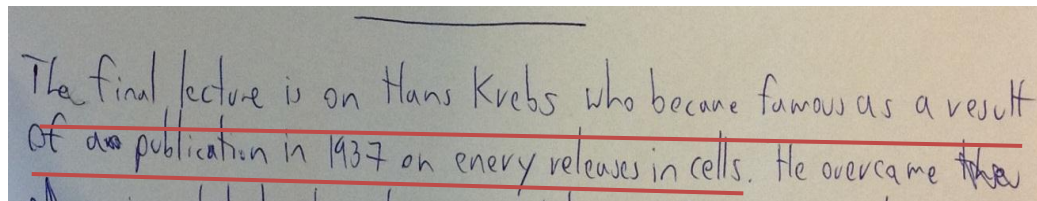 The final lecture is on Hans Krebs who became famous as a result
of a publication in 1937 on enery releases in cells. He overcame the